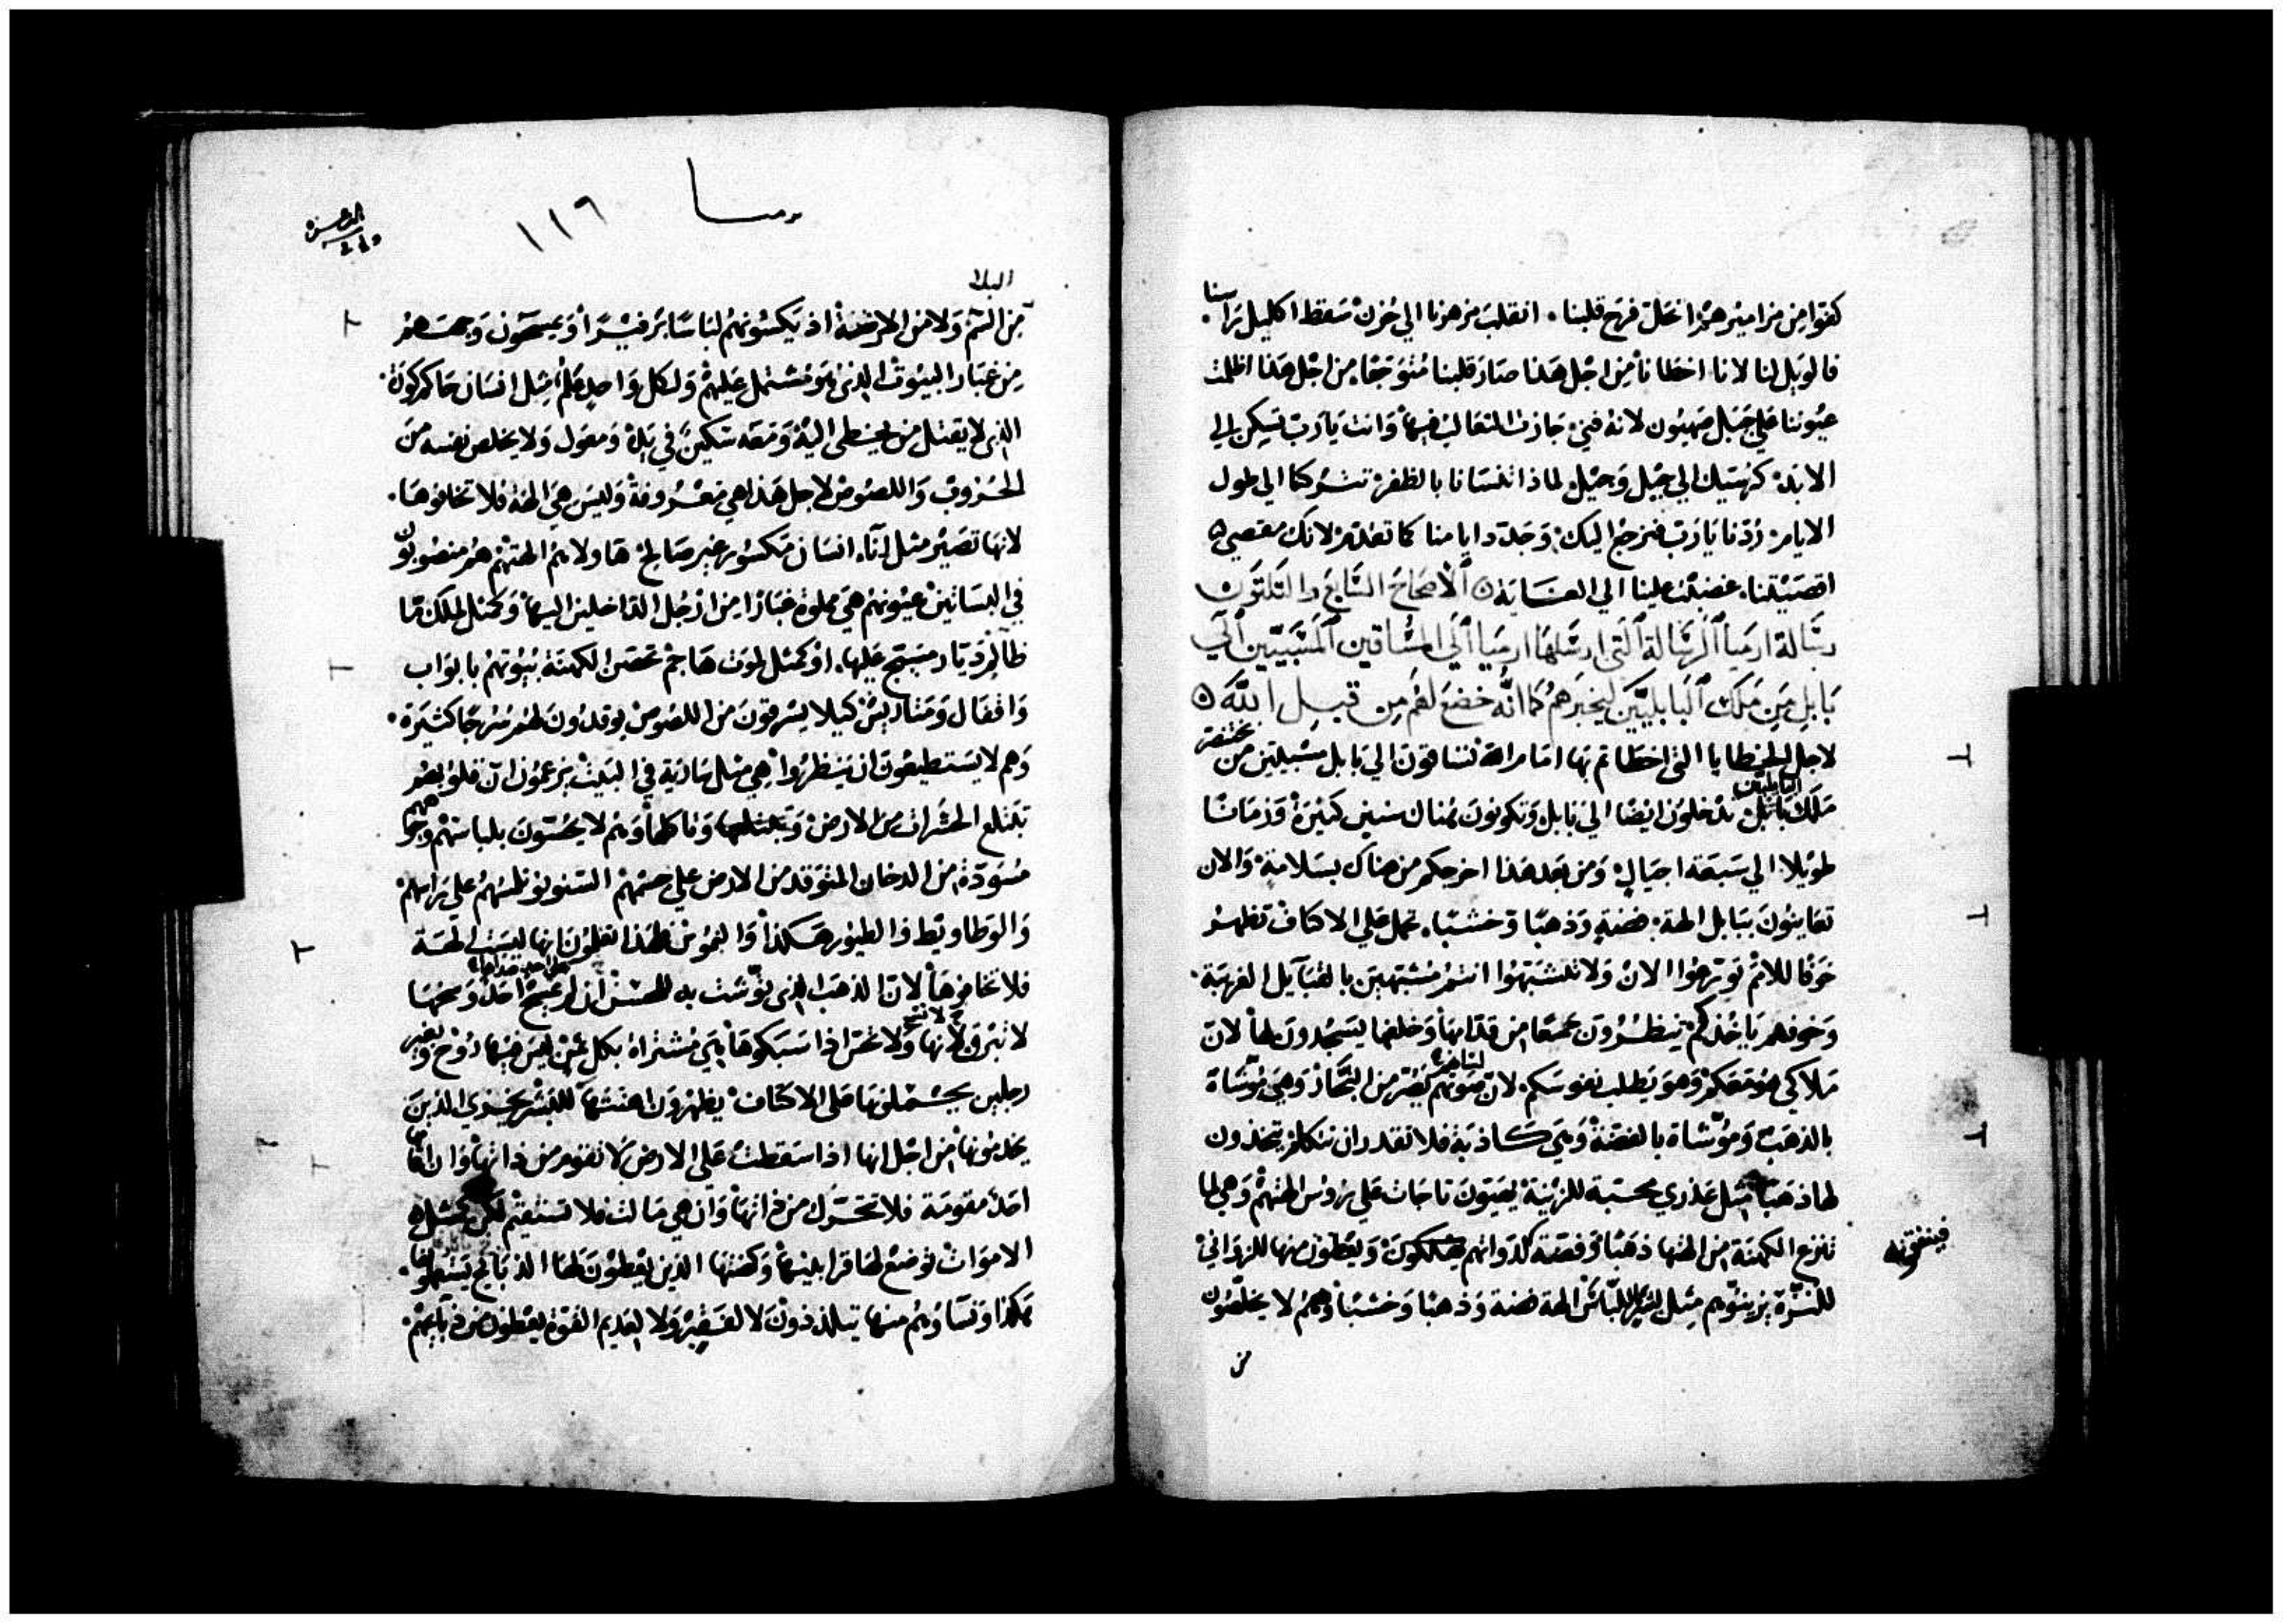 كفوا من مزاميرهم انحل فرح قلبنا. انقلب مزهرنا الي حزن سقط اكليل راسنا.
فالويل لنا لانا اخطانا من اجل هذا صار قلبنا متوجعا. من اجل هذا اظلمت
عيوننا علي جبل صهيون لانه فني جازت الثعالب فيها وانت يا رب تسكن الي
الابد. كرسيك الي جيل وجيل لماذا تنسانا بالظفر تتركنا الي طول
الايام. ردنا يا رب فنرجع اليك. وجدد ايامنا كما تقدم لانك مقصي
اقصيتنا. غضبت علينا الي الغاية ٥ الاصحاح السابع والثلثون
رسالة ارميا الرسالة التي ارسلها ارميا الي المساقين المسبيين الي
بابل من ملك البابليين ليخبرهم كما انه خضع لهم من قبل الله ٥
لاجل الخطايا التي اخطاتم بها امام الله تساقون الي بابل مسبيين من بختنصر
ملك بابل البابليين تدخلون ايضا الي بابل وتكونون هناك سنين كثيرة وزمانا
طويلا الي سبعة اجيال. ومن بعد هذا اخرجكم من هناك بسلامة والان
تعاينون ببابل الهة. فضة وذهبا وخشبا. تحمل علي الاكتاف تظهر
خوفا للامم توترعوا الان ولا تتشبهوا انتم مشتبهين بالقبايل الغريبة.
وخوفهم ياخذكم تنظرون جمعا من قدامها وخلفها يسجدون لها لان
ملاكي هو معكم وهو يطلب نفوسكم. لان صوتهم من النجار وهي موشاة
بالذهب وموشاة بالفضة وهي كاذبة فلا تقدر ان تتكلم يتخذون
لها ذهبا مثل عذري محبة للزينة يهيون تاجات علي روس الهتهم وهي لها
تنزع الكهنة من الهتها ذهبا وفضة لذواتهم ويعطون منها للزواني
فينفقونه
للسترة يزينوهم مثل للباس الهة فضة وذهبا وخشبا وهم لا يخلصون
من
ارميا
١١٦
البلا
من السم ولا من الارضة اذ يكسونهم لباسا برفيرا ويمسحون وجههم
من غبار البيوت الذي هو مشتمل عليهم ولكل واحد علم مثل انسان حاكم كون.
الذي لا يقتل من يخطي اليه ومعه سكين في يده ومعول ولا يخلص نفسه من
الحروب واللصوص لاجل هذا هي معروفة وليس هي الهة فلا تخافوها.
لانها تصير مثل اناء انسان مكسور غير صالح هاولايم الهتهم هم منصوبون
في البساتين عيونهم هي مملوة غبارا من ارجل الداخلين اليها وكمثل لملك ما
ظالم ديار مسيج عليها. او كمثل لموت هاجم تحصن الكهنة بيوتهم بابواب
واقفال ومتاريس كيلا يسرقون من اللصوص يوقدون لهم سرجا كثيرة.
وهم لا يستطيعون ان ينظروا هي مثل سارية في البيت يزعمون ان قلوبهم
تبتلع الحشرات من الارض وتاكلها وهم لا يحسون بلباسهم وجوههم
مسودة من الدخان المتوقد من الارض علي جسمهم السنونو تلسهم علي راسهم
والوطاويط والطيور هكذا والنموس فلهذا تعلمون انها ليست الهة
فلا تخافوها لان الذهب الذي توشت به للحسن ان لم يمسح احد وسخها
لا تبرق لانها ولا تحس اذا سبكوها هي مشتراة بكل ثمن ليس فيها روح وبغير
رجلين يحملونها علي الاكتاف يظهرون اهنتها للبشر يخزي الذين
يخدمونها من اجل انها اذا سقطت علي الارض لا تقوم من ذاتها وان اقامها
احد مقومة فلا تتحرك من ذاتها وان هي مالت فلا تستقيم لكن كمثل
الاموات توضع لها قرابينها وكهنتها الذين يعطون لها الذبايح يستعملونها.
هكذا ونساوهم منها يتلذذون لا لفقير ولا لعديم القوة يعطون من ذبايحهم.